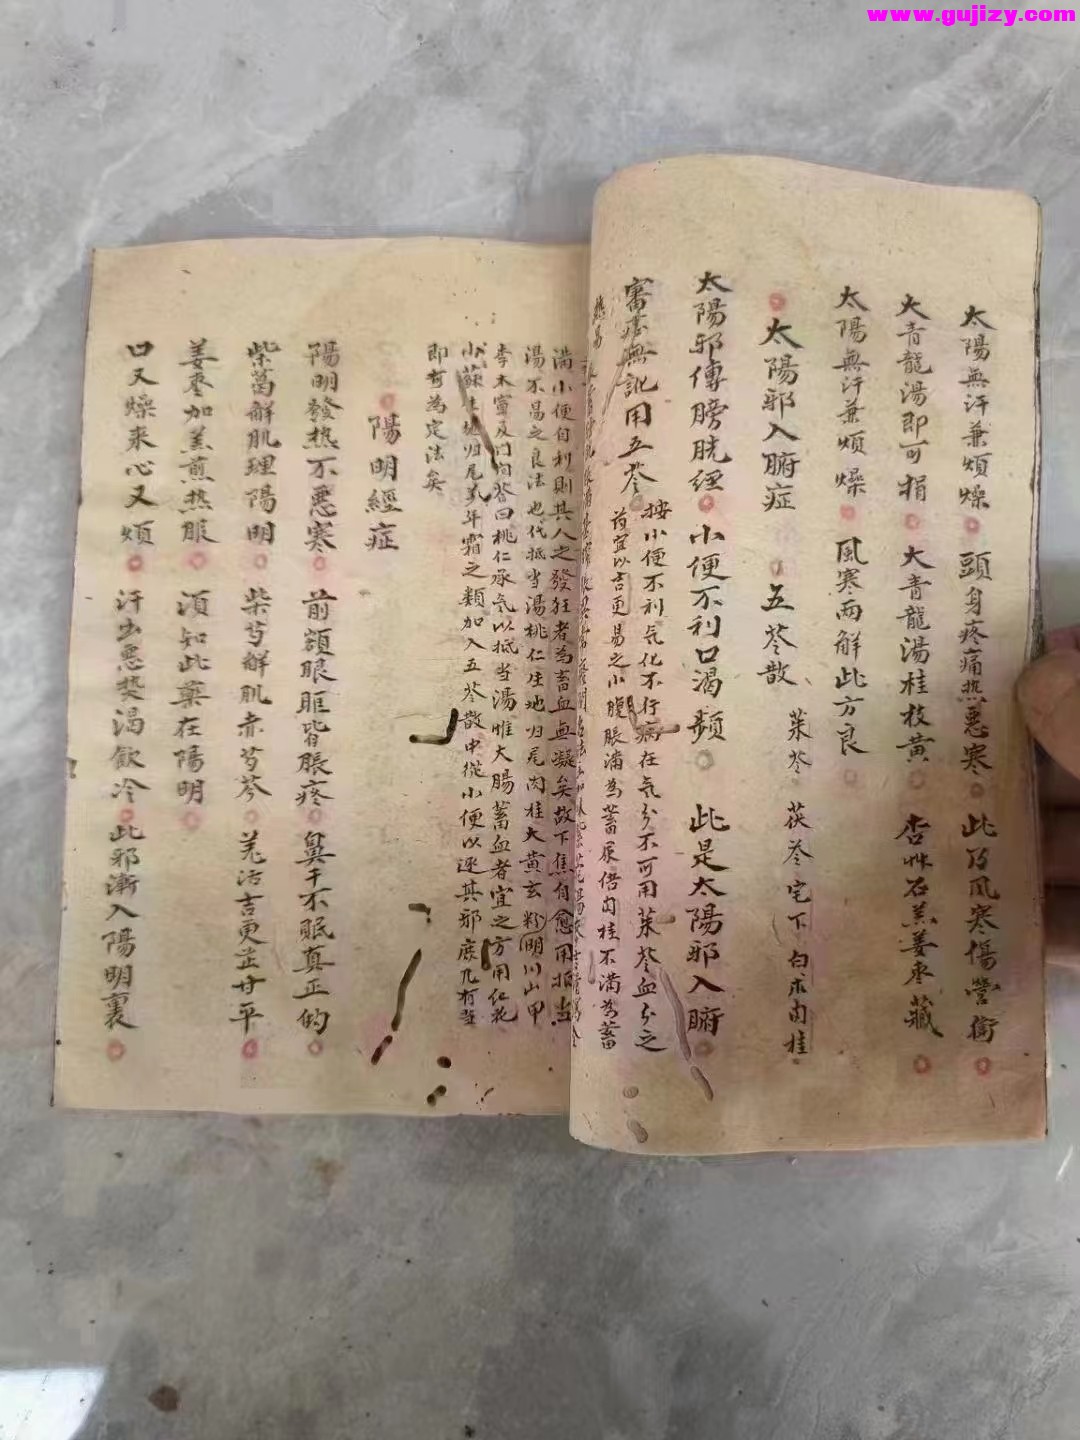 www.gujizy.com
太陽無汗兼煩燥 頭身疼痛熱惡寒 此乃風寒傷營衛
大青龍湯即可捐 大青龍湯桂枝黃 杏艸石羔姜枣藏
太陽無汗兼煩燥 風寒兩解此方良
太陽邪入腑症 五苓散 茱苓 茯苓 宅下 白朮 肉桂
太陽邪傳膀胱經 小便不利口渴頻 此是太陽邪入腑
審症無訛用五苓
按小便不利氣化不行病在氣分不可用茱苓血分之
宜以吉更易之小腹脹滿為蓄尿倍肉桂不滿為蓄
滿小便自利則其人之發狂者為畜血無凝矣故下焦自愈用抵当
湯不易之良法也代抵当湯桃仁生地归尾肉桂大黃玄粉明川山甲
李木 及门问答曰桃仁承氣以抵当湯惟大腸蓄血者宜之方用红花
小蘇 归尾 年霜之類加入五苓散中從小便以逐其邪庶几有当
即可為定法矣
陽明經症
陽明發熱不惡寒 前額眼眶皆脹疼 鼻干不眠真正的
柴葛解肌理陽明 柴芍解肌赤芍芩 羌活吉更芷甘平
姜枣加羔煎热服 須知此藥在陽明
口又燥来心又煩 汗出惡熱渴飲冷 此邪漸入陽明裏